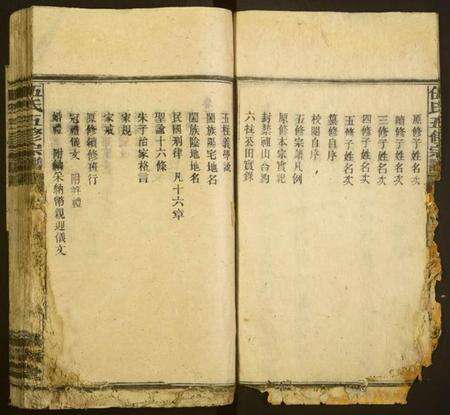 原修子姓名次
續修子姓名次
三修子姓名次
四修子姓名次
五修子姓名次
校閱自序
纂修自序
五修宗譜凡例
原修本宗實記
封禁祖山合約
六社公田實錄
玉程義學誌
闔族陽宅地名
闔族陰地地名
民國刑律 凡十六章
聖諭十六條
朱子治家格言
家規
家戒
原修續修班行
冠禮儀文 附笄禮
婚禮 附納采納幣親迎儀文
伍氏五修宗譜